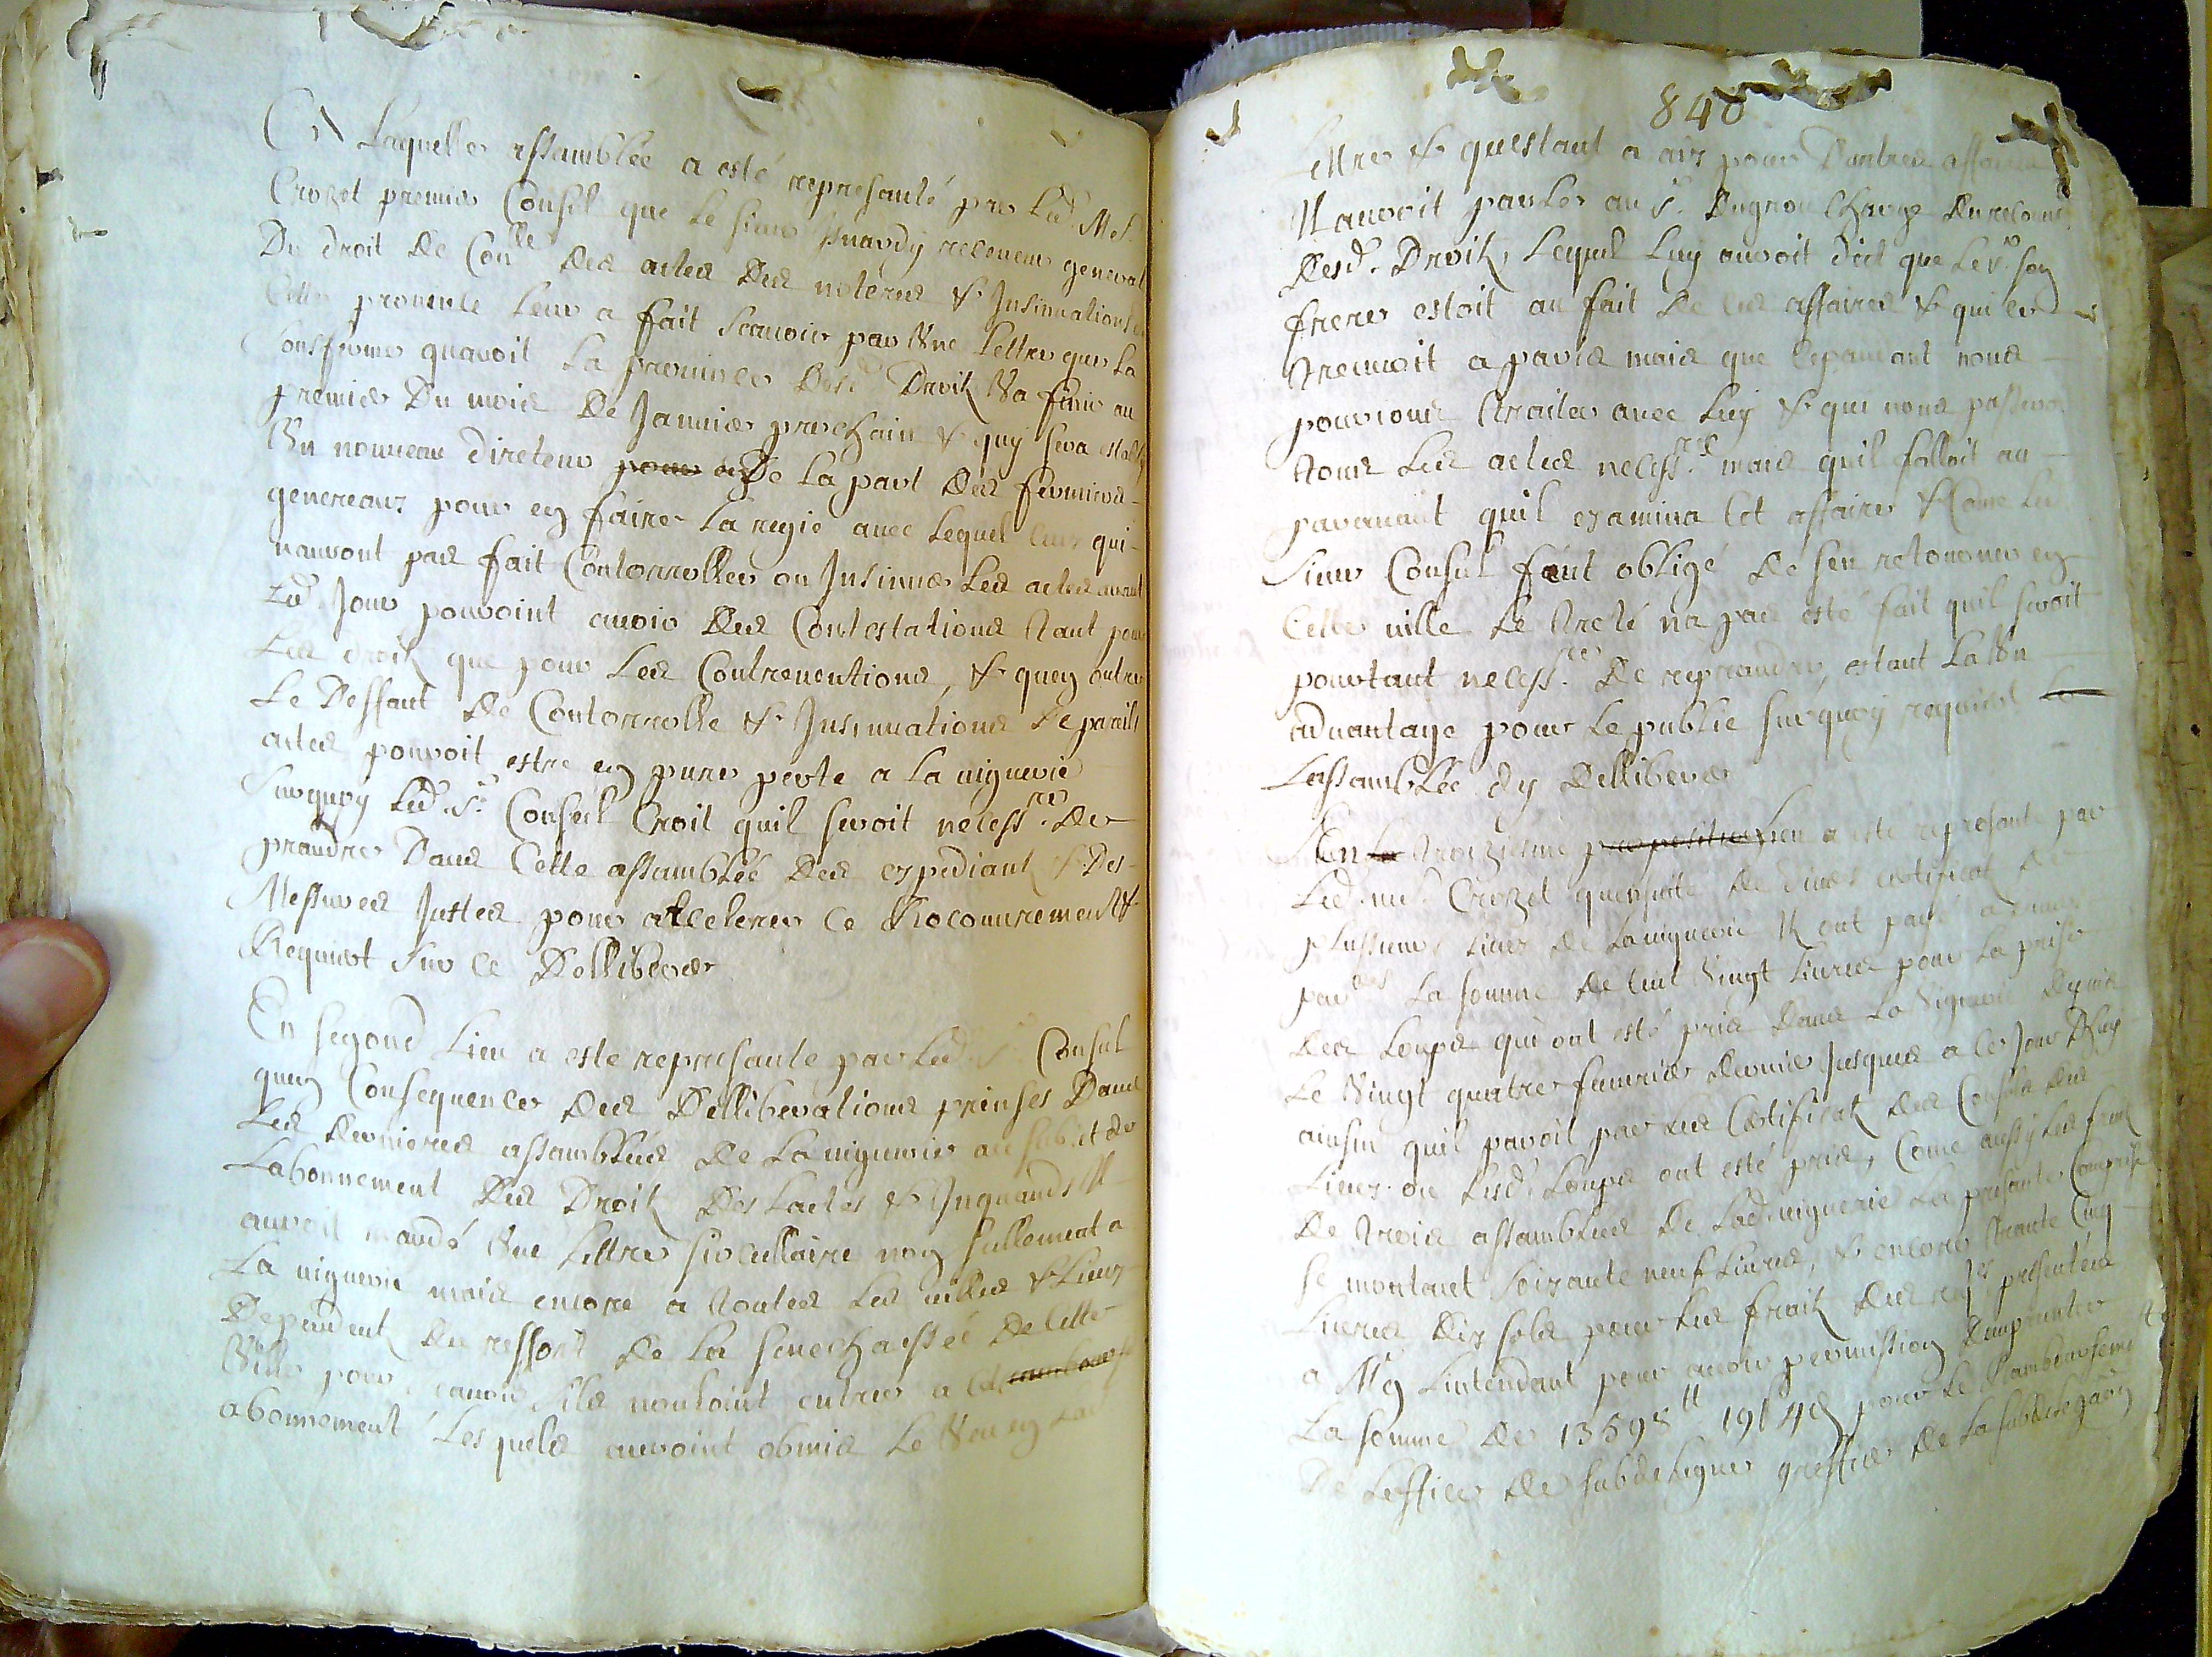 En Laquelle assamblée a esté represanté par Led. Me
Crozet premier Consul que Le sieur receveur general
Du droit de Conlle des actes des notéres & Insinuations
Cette province leur a fait scavoir par Une Lettre que La
quavoit La province Desd. Droitz Va finir au
premier Du mois De Janvier prochain & quy sera
Un nouveau directeur De La part des fermiers
genereaux pour en faire La regie avec Lequel ceux qui
nauront pas fait Contorroller ou Insinuer Les actes avant
Led. Jour pouroint avoir des Contestations tant pour
Les droitz que pour Les Contreventions, & quen outre
Le Deffaut de Contorrolle & Insinuations de pareils
actes pouroit estre en pure perte a La viguerie
Surquoy Led. Sr. Consul Croit quil seroit necessre. de
prandre Dans Cette assamblée des expediantz & Des
Messures Justes pour accelerer ce Recouvrement &
Requiert Sur ce Delliberer
En segond Lieu a este represante par Led. Sr. Consul
quen Consequence des Delliberations prinses Dans
Les dernieres assamblées de La viguerie au subiet de
Labonnement des Droitz des actes &
auroit mandé Une Lettre sircullaire non sullement a
La viguerie mais encore a toutes Les villes & Lieux
Dependent du ressort de La senechaussée de cette
Ville pour scavoir sils vouloint entrer a
abonnement Lesquels auroint obmis Le
840
Lettre & questant a aix pour Dautres affaires
Il auroit parler au Sr. Dugrou Charge
desd. Droitz, Lequel Luy auroit dit que Le Sr. son
frere estoit au fait de ces affaires & qui se
treuvoit a paris mais que cepandant nous
pourions traiter avec Luy & que nous passera
tous Les actes necessres mais quil falloit au
paravant quil examina cet affaire & Come Le
Sieur Consul fut obligé de sen retourner en
Cette ville Le treté na pas esté fait quil seroit
pourtant necessre. De reprandre, estant La Un
advantage pour Le public surquoy requiert
Lassamblée dy Delliberer
En troizieme lieu a esté represanté par
Led. me. Crozet quensuite de divers certificat de
plussieurs Lieux de La viguerie Ilz ont payé a divers
parers La somme de cent Vingt Livres pour La prise
des Loups qui ont esté pris dans La Viguerie depuis
Le Vingt quatre feuvrier dernier Jusques a ce Jour Dhuy
ainsin quil paroit par Les Certificatz des Consuls des
Lieux ou Lesd. Loups ont esté pris, Come aussy Les fraix
De trois assamblées de Lad. viguerie La presante Comprise
se montant soixante neuf Livres, & encore trante Cinq
Livres dix sols pour Les fraix des reqtes presentées
a Mgr Lintendant pour avoir permission Dempruntter
La somme de 13598 ₶ 19 s 4 d pour Le Rambourseme
De Loffice de subdelegué greffier de La subdelegaon